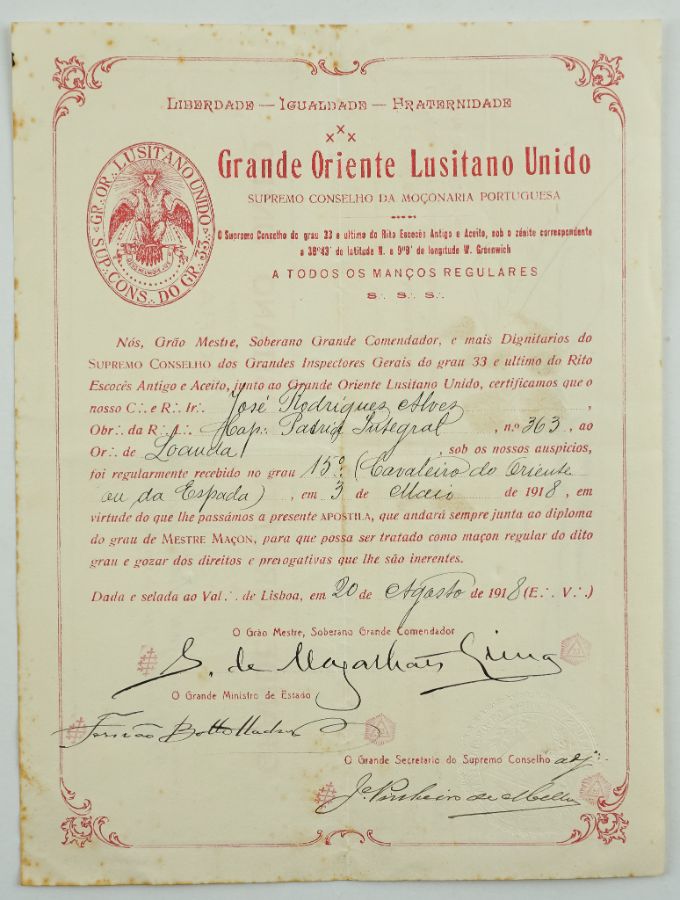 LIBERDADE — IGUALDADE — FRATERNIDADE
x x x
Grande Oriente Lusitano Unido
SUPREMO CONSELHO DA MOÇONARIA PORTUGUESA
GR.·. OR.·. LUSITANO UNIDO
SUP.·. CONS.·. DO GR.·. 33
O Supremo Conselho do grau 33 e ultimo do Rito Escocês Antigo e Aceito, sob o zénite correspondente
a 38°43' de latitude N. e 9°8' de longitude W. Greenwich
A TODOS OS MANÇOS REGULARES
S.·. S.·. S.·.
Nós, Grão Mestre, Soberano Grande Comendador, e mais Dignitarios do
SUPREMO CONSELHO dos Grandes Inspectores Gerais do grau 33 e ultimo do Rito
Escocês Antigo e Aceito, junto ao Grande Oriente Lusitano Unido, certificamos que o
nosso C.·. e R.·. Ir.·. José Rodrigues Alves ,
Obr.·. da R.·. L.·. Cap.·. Patria Integral , n.º 363, ao
Or.·. de Loanda , sob os nossos auspicios,
foi regularmente recebido no grau 15º (Cavaleiro do Oriente
ou da Espada) , em 3 de Maio de 1918, em
virtude do que lhe passámos a presente APOSTILA, que andará sempre junta ao diploma
do grau de MESTRE MAÇON, para que possa ser tratado como maçon regular do dito
grau e gozar dos direitos e prerogativas que lhe são inerentes.
Dada e selada ao Val.·. de Lisboa, em 20 de Agosto de 1918 (E.·. V.·.)
O Grão Mestre, Soberano Grande Comendador
S. de Magalhães Lima
O Grande Ministro de Estado
Fernão Botto Machado
O Grande Secretario do Supremo Conselho adj.º
J. Pinheiro de Mello